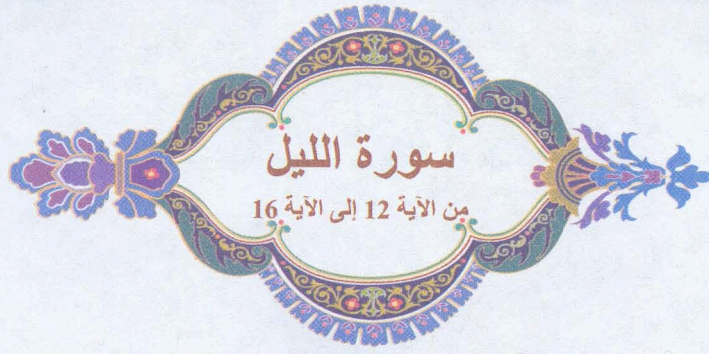 سورة الليل
من الآية 12 إلى الآية 16